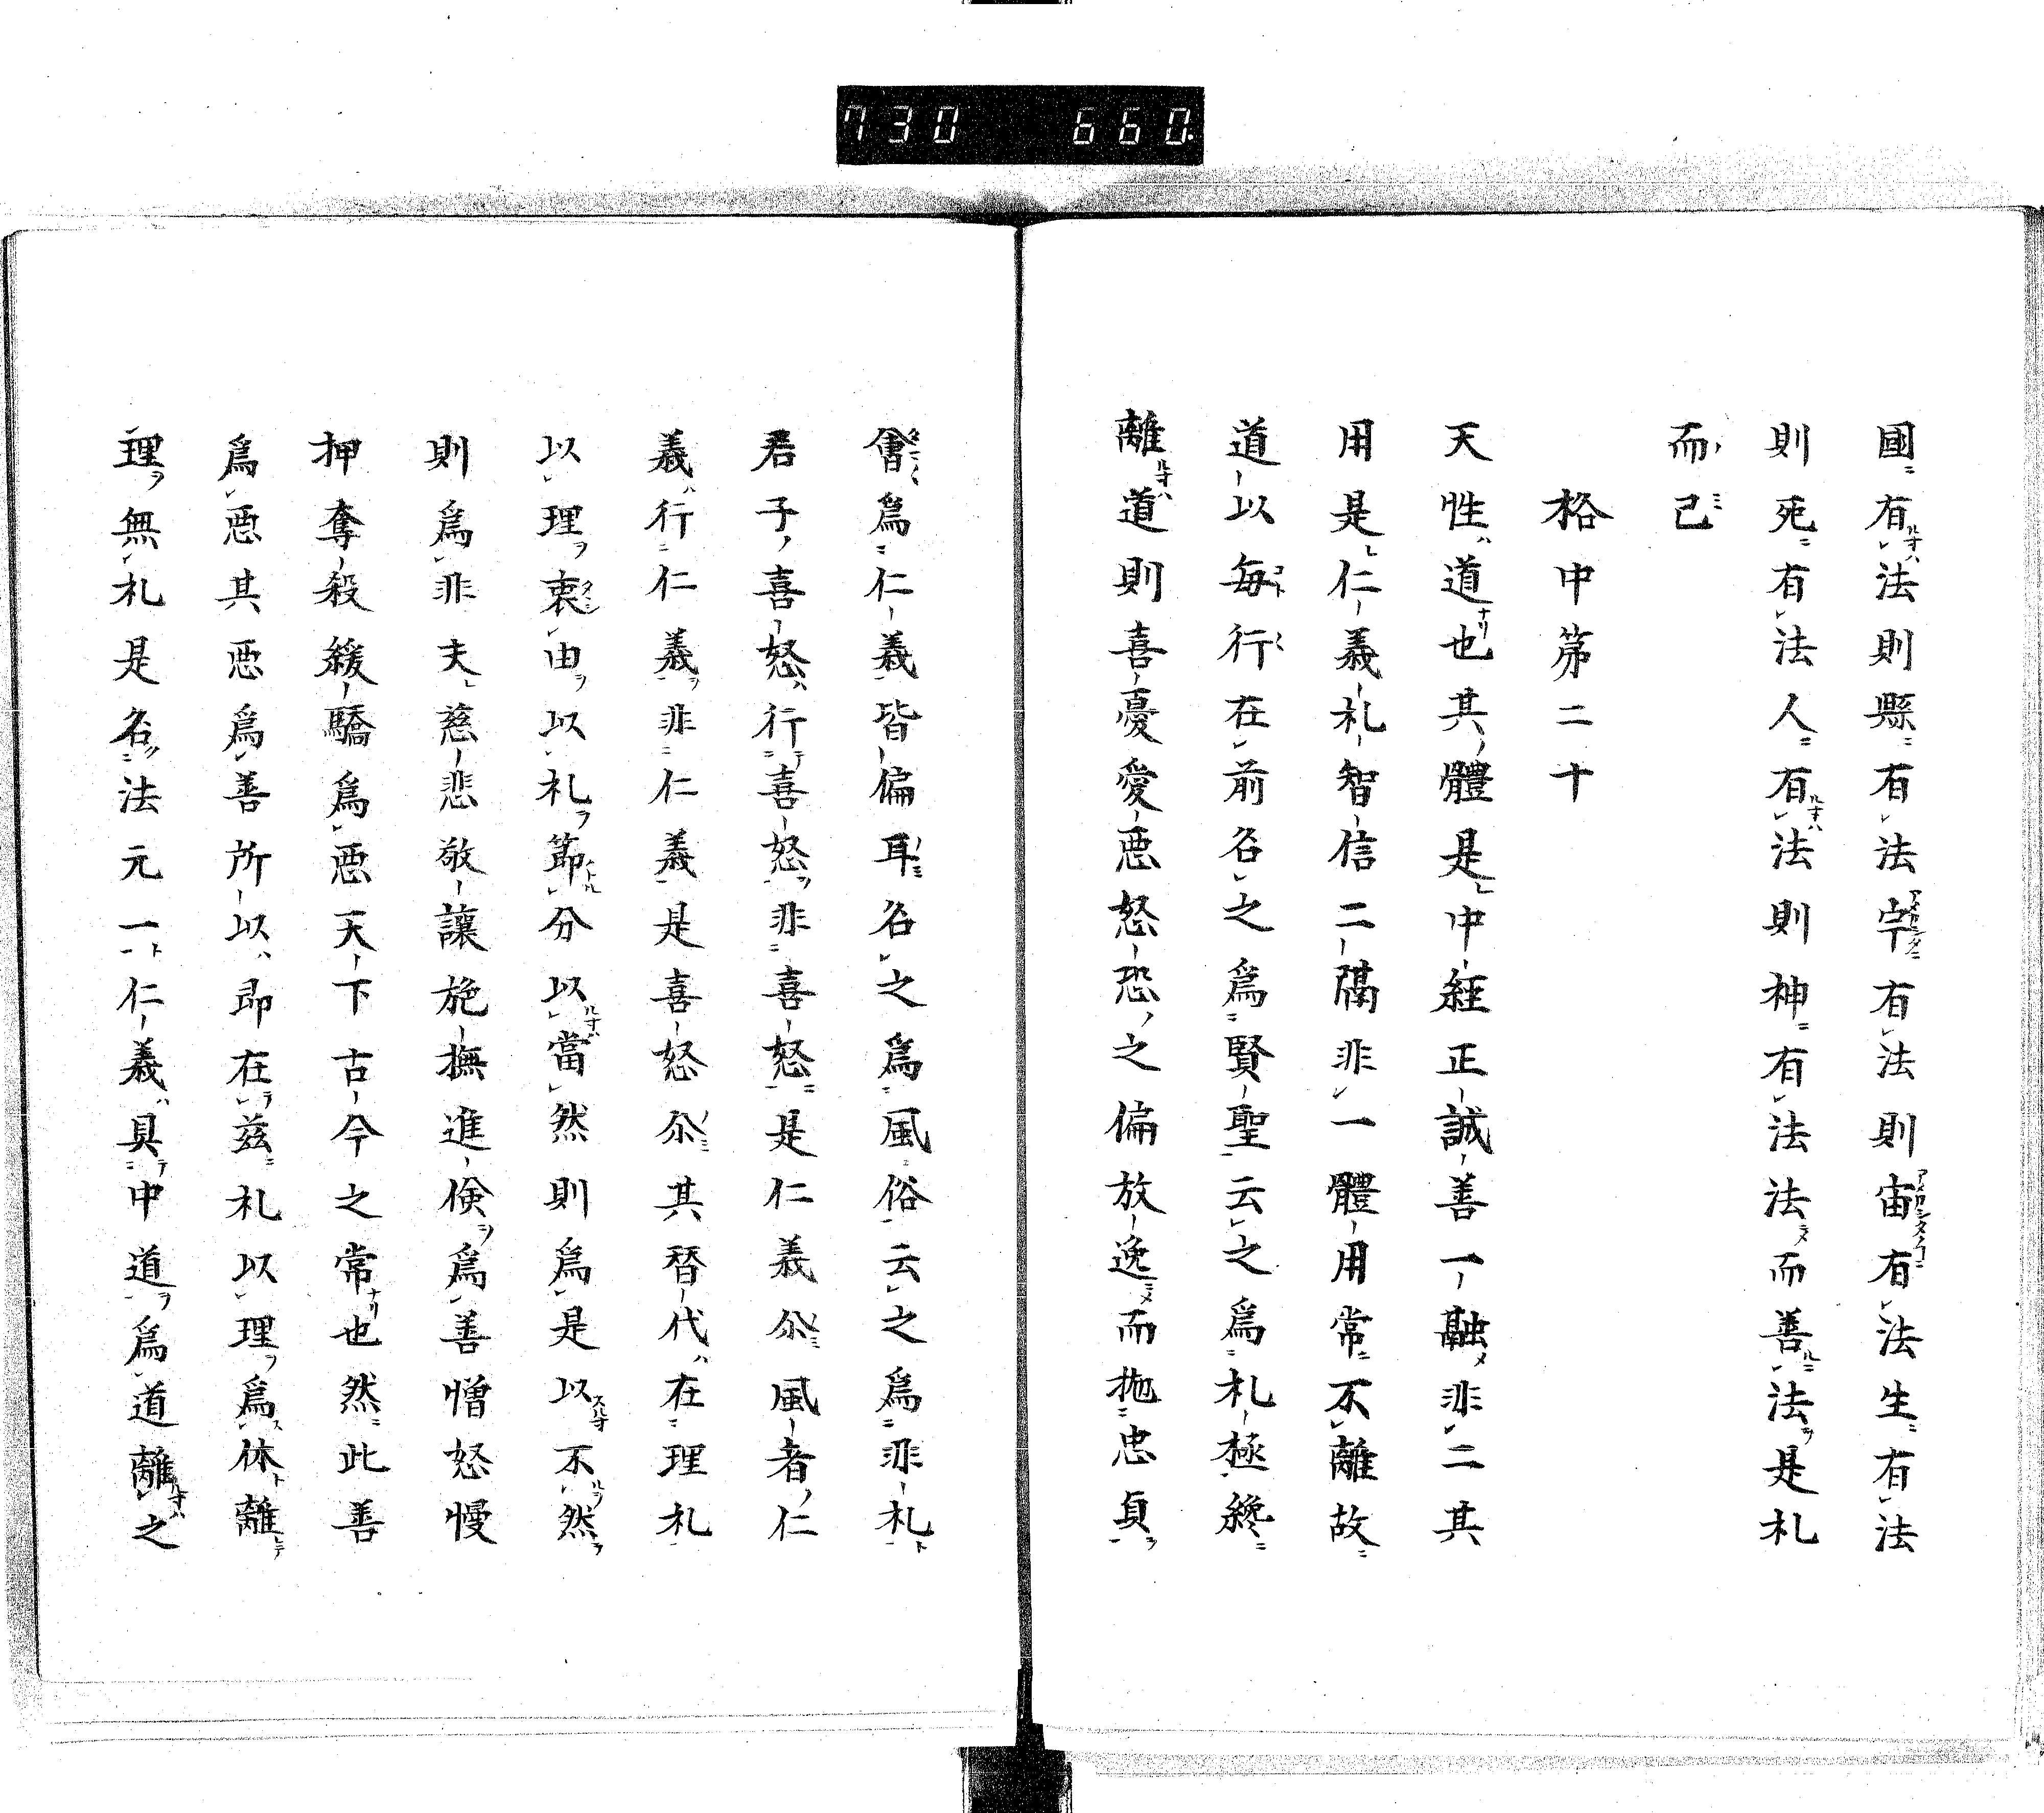 730 660
國有法則縣有法宇有法則宙有法生有法
則死有法人有法則神有法法而善法是礼
而已
格中第二十
天性道也其體是中經正誠善一融非二其
用是仁義礼智信二隔非一體用常不離故
道以毎行在前名之爲賢聖云之爲礼極纔
離道則喜憂愛悪怒恐之偏放逸而抛忠貞
會爲仁義皆偏耳名之爲風俗云之爲非礼
君子喜怒行喜怒非喜怒是仁義尒風者仁
義行仁義非仁義是喜怒尒其替代在理礼
以理衷由以礼節分以當然則爲是以不然
則爲非夫慈悲敬讓施撫進儉爲善憎怒慢
押奪殺緩驕爲悪天下古今之常也然此善
爲悪其悪爲善所以即在茲礼以理爲休離
理無礼是名法元一仁義具中道爲道離之